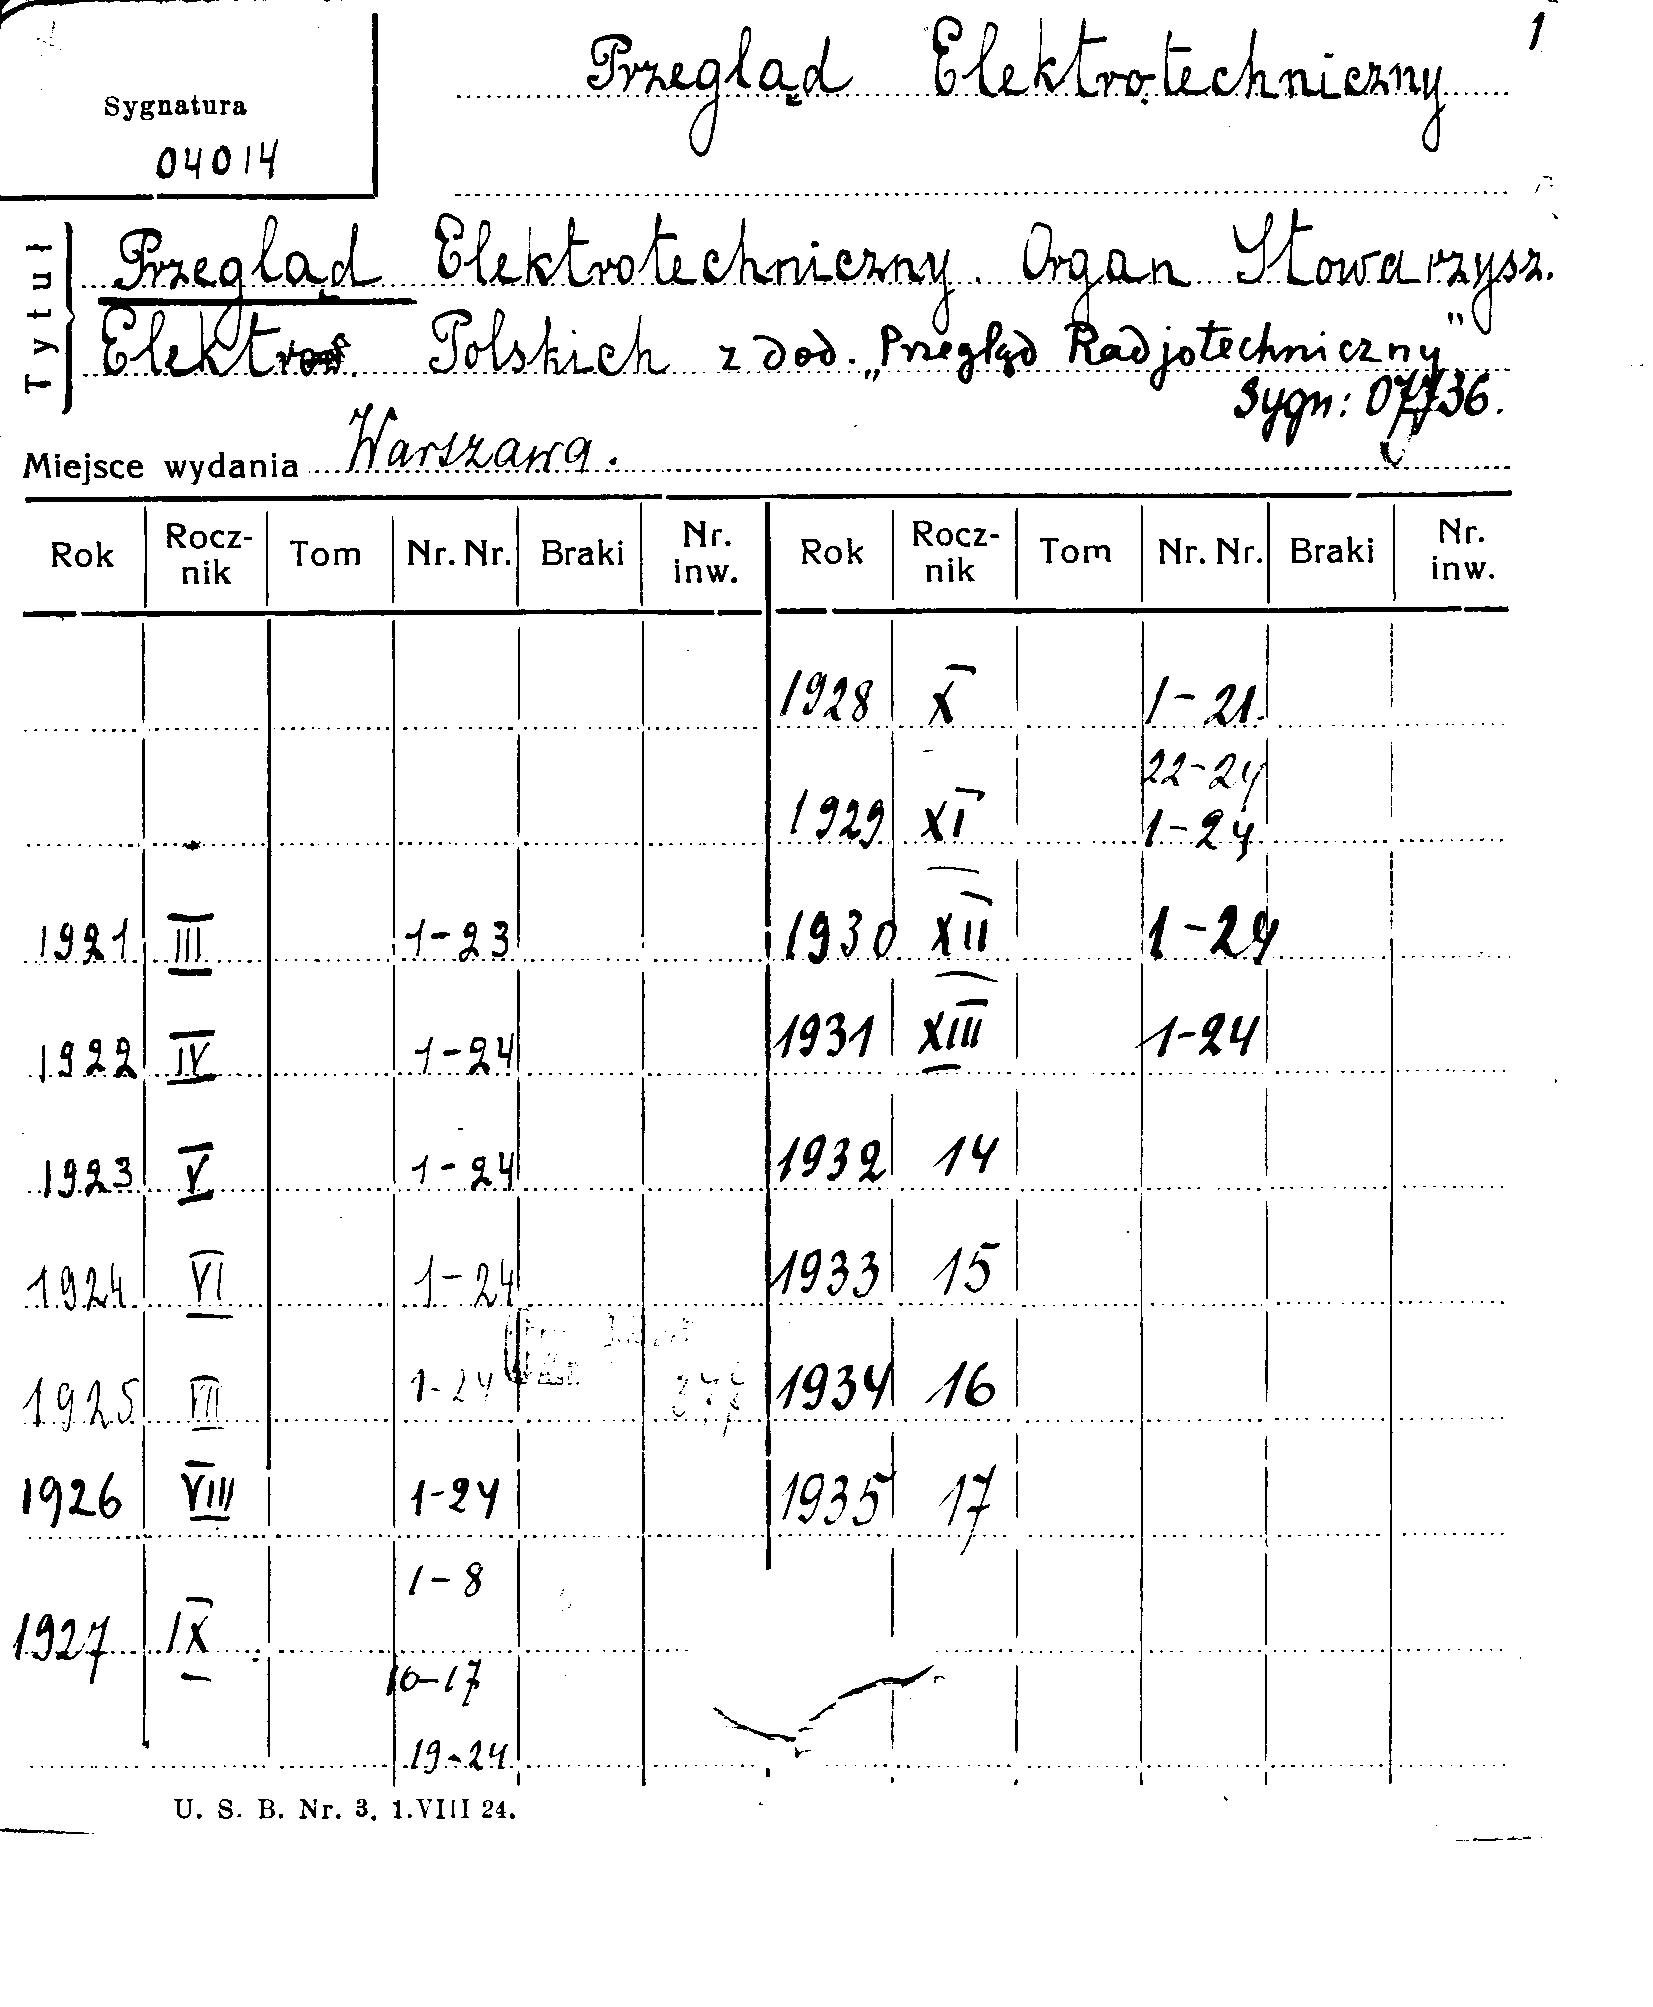 1
Przegląd Elektrotechniczny
Sygnatura
04014
Tytuł
Przegląd Elektrotechniczny. Organ Stowarzysz.
Polskich z dod. „Przegląd Radjotechniczny"
Sygn: 07736.
Miejsce wydania Warszawa.
Rok Rocz-nik Tom Nr. Nr. Braki Nr. inw. Rok Rocz-nik Tom Nr. Nr. Braki Nr. inw.
1928 X 1-21.
22-24
1929 XI 1-24
1921 III 1-23 1930 XII 1-24
1922 IV 1-24 1931 XIII 1-24
1923 V 1-24 1932 14
1924 VI 1-24 1933 15
1925 VII 1-24 1934 16
1926 VIII 1-24 1935 17
1-8
1927 IX
10-17
19-24
U. S. B. Nr. 3. 1.VIII 24.